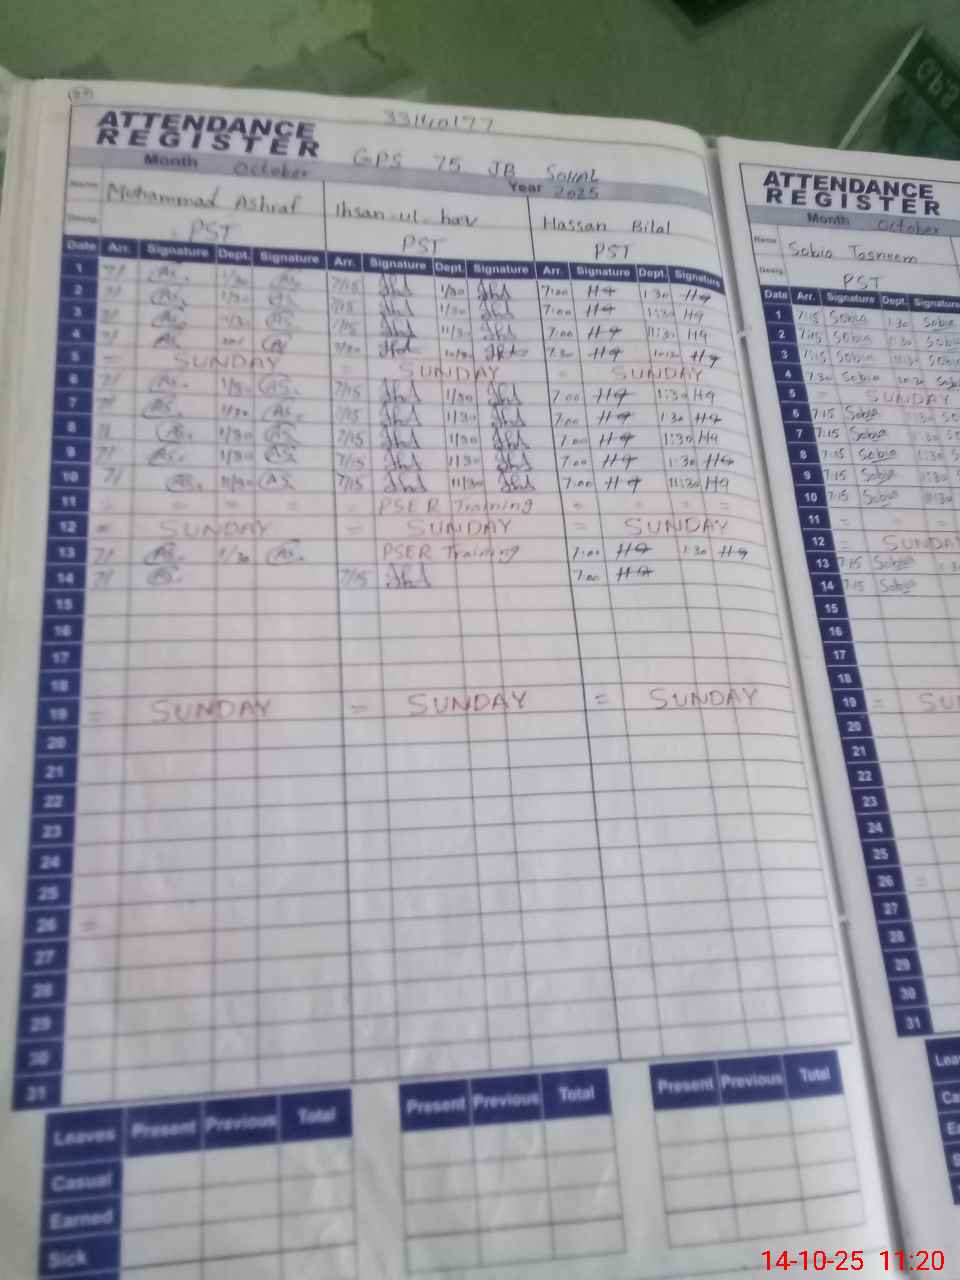 33140177
ATTENDANCE
REGISTER
GPS 75 JB SOHAL
Month October Year 2025
Name Mohammad Ashraf Ihsan-ul-haq Hassan Bilal
PST PST PST
Date Arr. Signature Dept. Signature Arr. Signature Dept. Signature Arr. Signature Dept. Signature
1 7/ AS. 1/30 AS. 7/15 1/30 7:00 HA 1:30 HA
2 7/ AS. 1/30 AS. 7/15 1/30 7:00 HA 1:30 HA
3 7/ AS. 1/30 AS. 7/15 11/30 7:00 HA 11:30 HA
4 AS. AS. 7:30 HA HA
5 = SUNDAY SUNDAY = SUNDAY
6 7/ AS. 1/30 AS. 7/15 1/30 7:00 HA 1:30 HA
7 7/ AS. 1/30 AS. 7/15 1/30 7:00 HA 1:30 HA
8 7/ AS. 1/30 AS. 7/15 1/30 7:00 HA 1:30 HA
9 7/ AS. 1/30 AS. 7/15 1/30 7:00 HA 1:30 HA
10 7/ AS. 11/30 AS. 7/15 11/30 7:00 HA 11:30 HA
11 = = = = PSER Training = = = =
12 = SUNDAY = SUNDAY = SUNDAY
13 7/ AS. 1/30 AS. PSER Training 7:00 HA 1:30 HA
14 7/ AS. 7/15 7:00 HA
15
16
17
18
19 = SUNDAY = SUNDAY = SUNDAY
20
21
22
23
24
25
26 =
27
28
29
30
31
Leaves Present Previous Total Present Previous Total Present Previous Total
Casual
Earned
Sick
ATTENDANCE
REGISTER
Month October
Name Sobia Tasneem
PST
Date Arr. Signature Dept. Signature
1 7:15 Sobia 1:30 Sobia
2 7:15 Sobia 1:30 Sobia
3 7:15 Sobia 11:30 Sobia
4 7:30 Sobia 10:30 Sobia
5 = SUNDAY
6 7:15 Sobia 1:30
7 7:15 Sobia 1:30
8 7:15 Sobia 1:30
9 7:15 Sobia 1:30
10 7:15 Sobia 11:30
11 = =
12 = SUNDAY
13 7:15 Sobia
14 7:15 Sobia
15
16
17
18
19 =
20
21
22
23
24
25
26 =
27
28
29
30
31
14-10-25 11:20